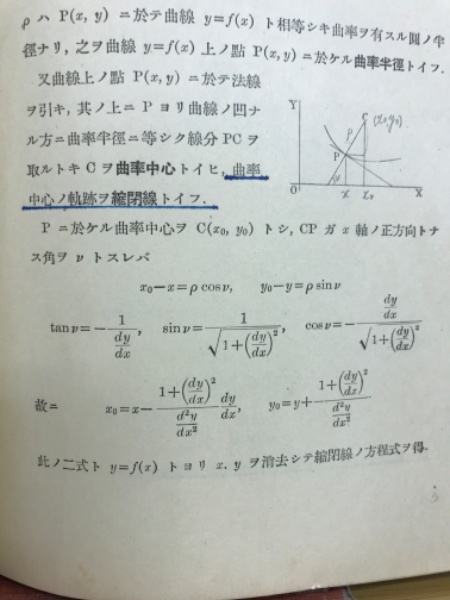 ρ ハ P(x, y) ニ於テ曲線 y=f(x) ト相等シキ曲率ヲ有スル圓ノ半
徑ナリ, 之ヲ曲線 y=f(x) 上ノ點 P(x, y) ニ於ケル曲率半徑トイフ.
又曲線上ノ點 P(x, y) ニ於テ法線
ヲ引キ, 其ノ上ニ P ヨリ曲線ノ凹ナ
ル方ニ曲率半徑ニ等シク線分 PC ヲ
取ルトキ C ヲ曲率中心トイヒ, 曲率
中心ノ軌跡ヲ縮閉線トイフ.
Y
C (x₀,y₀)
ρ
P
ν
O
x
x₀
X
P ニ於ケル曲率中心ヲ C(x₀, y₀) トシ, CP ガ x 軸ノ正方向トナ
ス角ヲ ν トスレバ
x₀−x=ρ cosν, y₀−y=ρ sinν
tanν=−1/(dy/dx), sinν=1/√(1+(dy/dx)²), cosν=−(dy/dx)/√(1+(dy/dx)²)
故ニ x₀=x−(1+(dy/dx)²)/(d²y/dx²) dy/dx, y₀=y+(1+(dy/dx)²)/(d²y/dx²)
此ノ二式ト y=f(x) トヨリ x, y ヲ消去シテ縮閉線ノ方程式ヲ得.